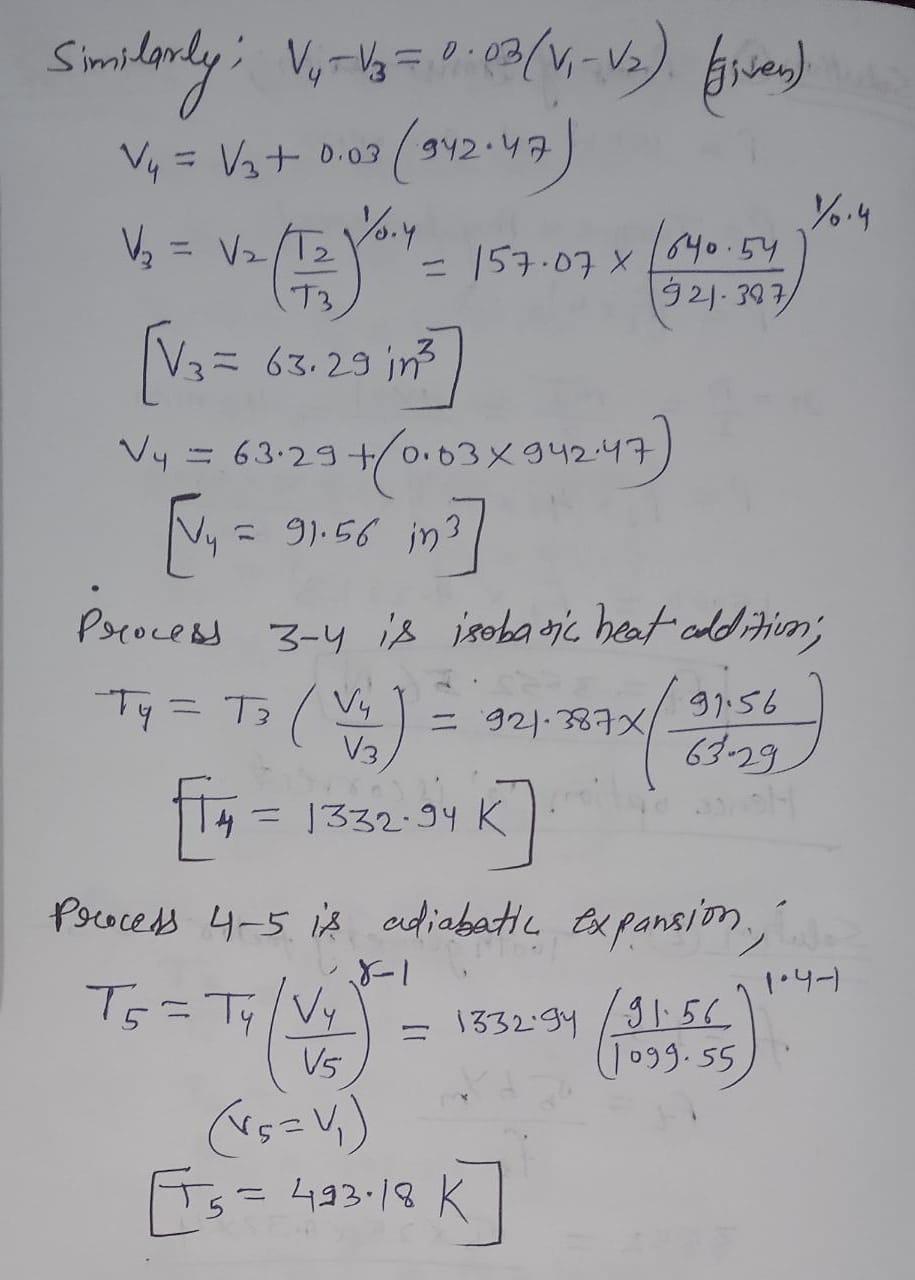 Similarly; V₄-V₃ = 0.03(V₁-V₂) (given)
V₄ = V₃ + 0.03(942.47)
V₃ = V₂(T₂/T₃)^(1/0.4) = 157.07 × (640.54/921.387)^(1/0.4)
[V₃ = 63.29 in³]
V₄ = 63.29 + (0.03×942.47)
[V₄ = 91.56 in³]
Process 3-4 is isobaric heat addition;
T₄ = T₃(V₄/V₃) = 921.387×(91.56/63.29)
[T₄ = 1332.94 K]
Process 4-5 is adiabatic expansion;
T₅ = T₄(V₄/V₅)^(γ-1) = 1332.94 (91.56/1099.55)^(1.4-1)
(V₅=V₁)
[T₅ = 493.18 K]